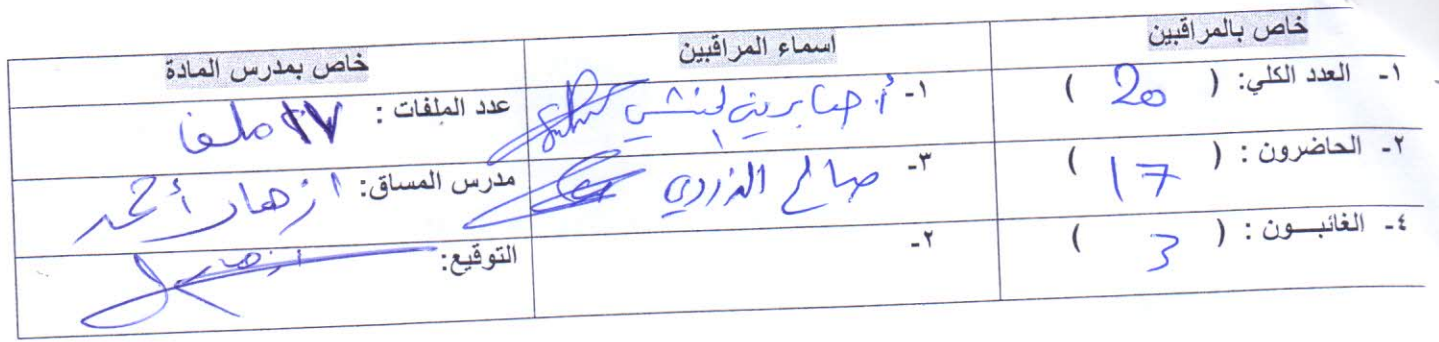 خاص بالمراقبين اسماء المراقبين خاص بمدرس المادة
١- العدد الكلي: ( 20 ) ١- أ. صابرين عدد الملفات : ١٧ ملف
٢- الحاضرون : ( 17 ) ٣- صالح مدرس المساق: ازهار أحمد
٤- الغائبــون : ( 3 ) ٢- التوقيع: ازهار